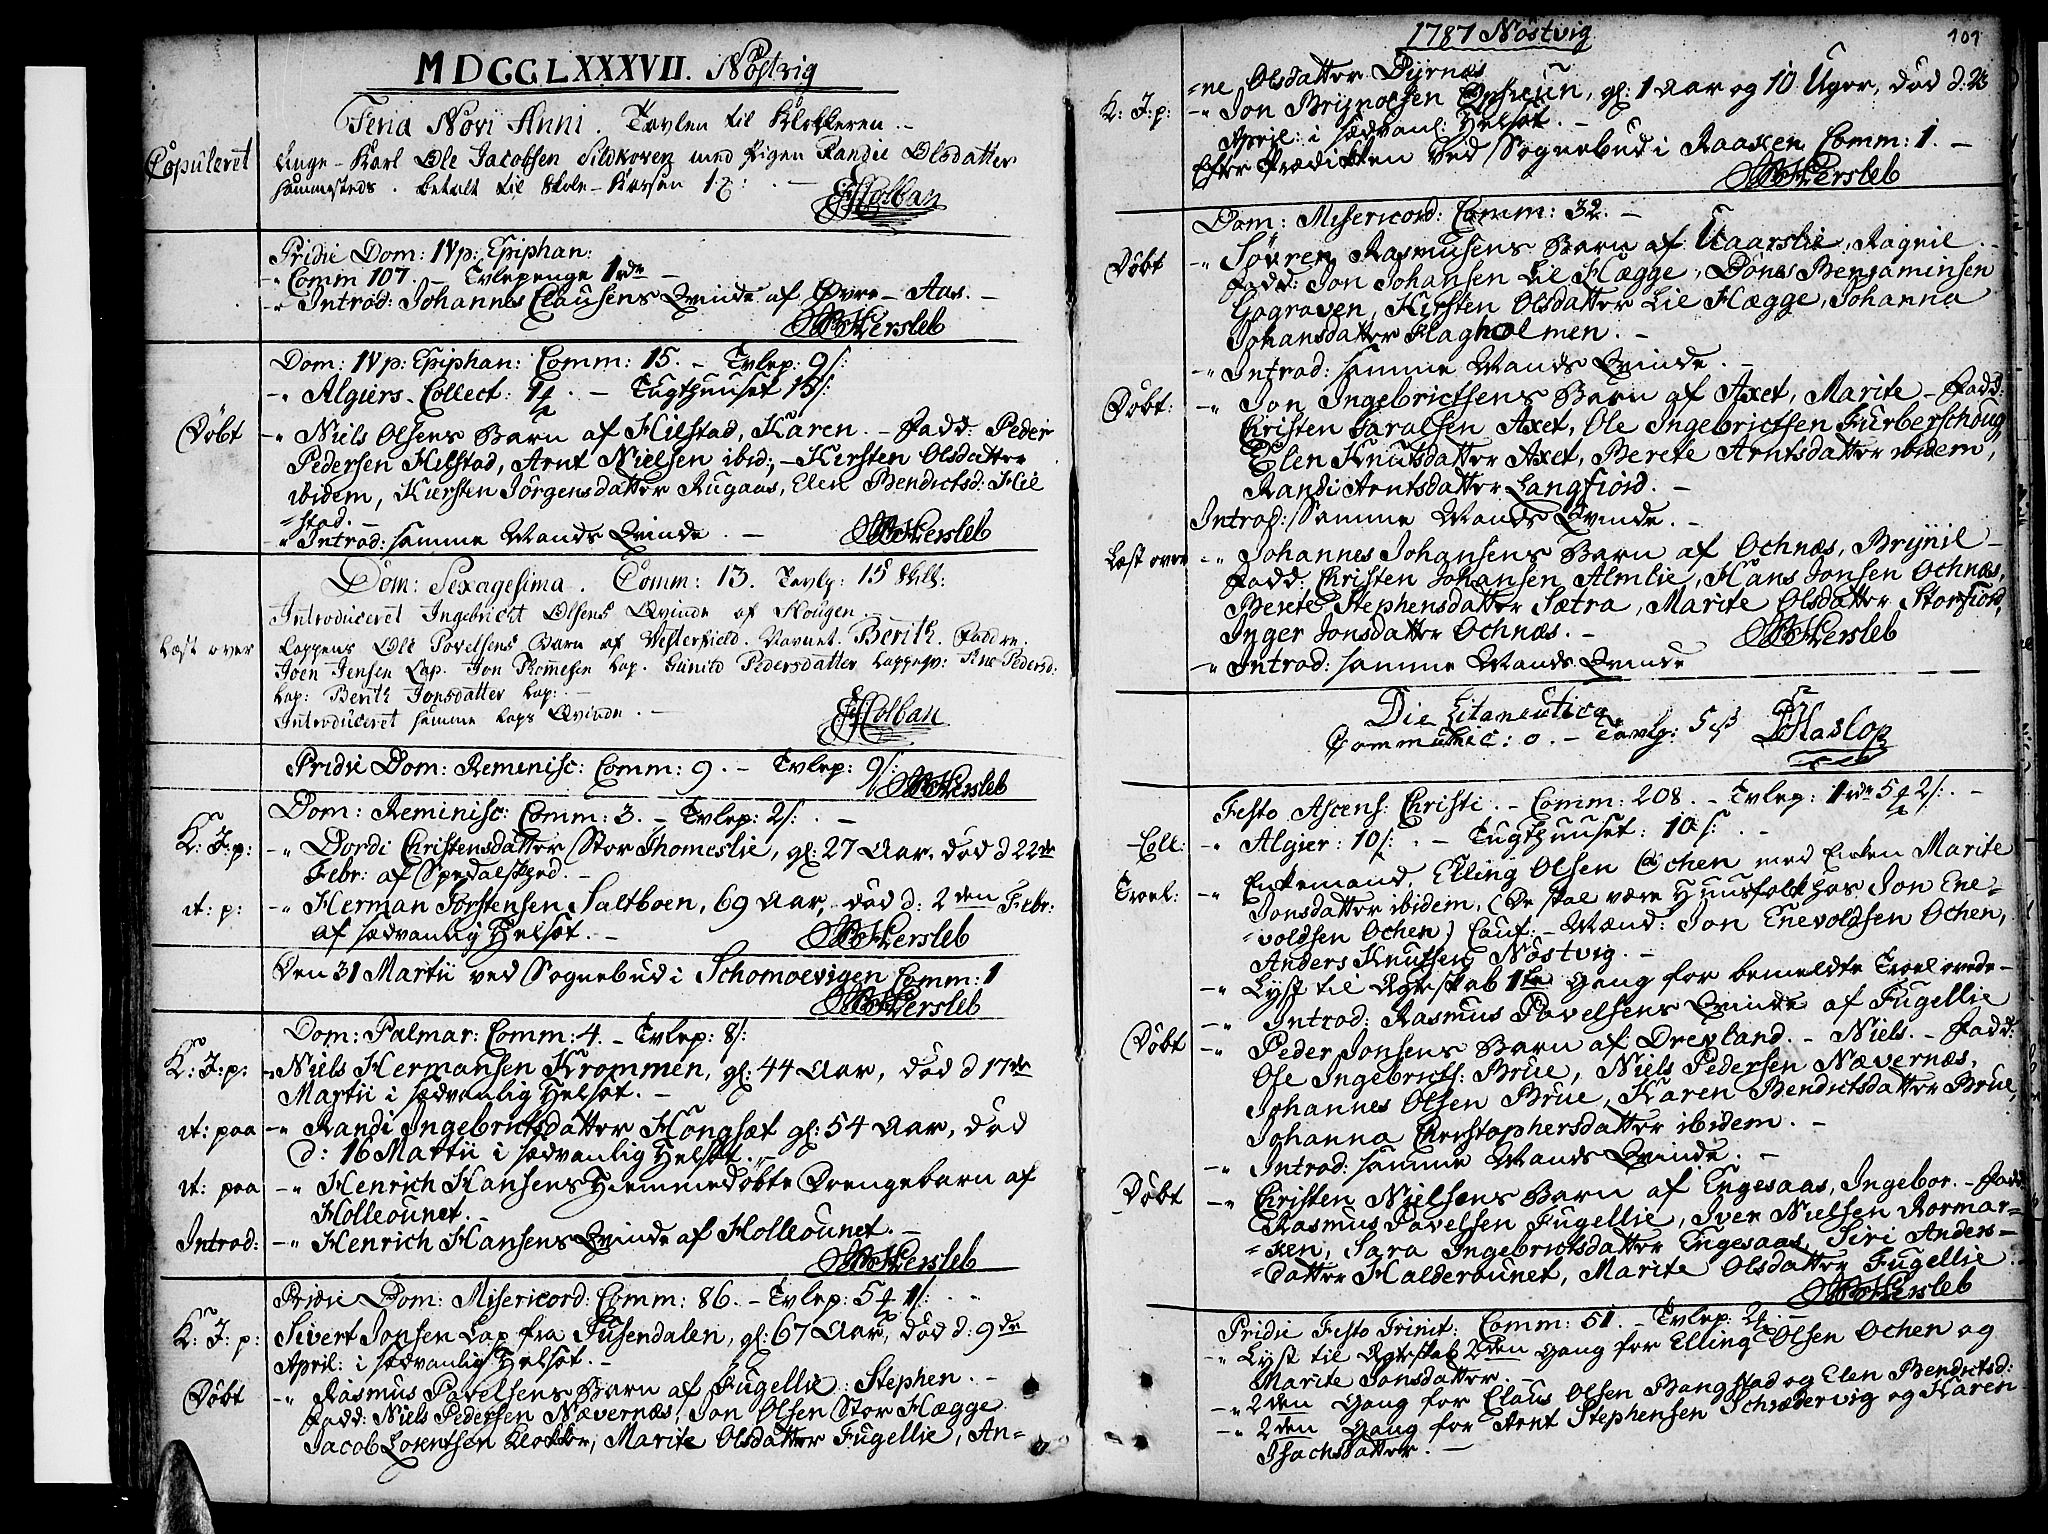 MDCCLXXXVII. Nöstvig
Feria Novi Anni. Tavlen til Klokkeren.-
Copuleret Unge-Karl Ole Jacobsen Sildkoren med Pigen Randie Olsdatter
Hammesteds. betalt til Skole-Kassen
Holban
Pridie Dom: IVp: Epiphan:
-" Comm 107. - Tvlepenge 1rdr -
-" Introd: Johannes Clausens Qvinde af Øvre-Aas.-
Hersleb
Dom: IVp: Epiphan: Comm: 15. - Tvlep: 9/:
-" Algiers-Collect: - Tugthuuset 15/:
Döbt -" Niels Olsens Barn af Hilstad, Karen. - Fadd: Peder
Pedersen Hilstad, Arnt Nielsen ibid:, - Kirsten Olsdatter
ibidem, Kirsten Jörgensdatter Rugaas, Elen Bendictsd: Hil
=stad.-
" Introd: samme Mands Qvinde. - Hersleb
Dom: Sexagesima. Comm: 13. Tavlp: 15 Skill:
Introduceret Ingebricht Olsens Qvinde af Hougen.-
Læst over Lappens Ole Povelsens Barn af Vesterfield. Navnet. Berith. Faddre.
Joen Jensen Lap. Jon Thomesen Lap. Gunild Pedersdatter Lappepv: Pedersd:
Lap: Berith Jonsdatter Lap:.-
Introduceret samme Laps Qvinde.-
Holban
Pridie Dom: Reminisc: Comm: 9. - Tvlep: 9/:
Hersleb
Dom: Reminisc: Comm: 3. - Tvlep: 2/: . -
K: J: p: -" Dordi Christensdatter Stor Thomeslie, gl: 27 Aar, död d 22de
Febr: af Spedalskhed.-
it: p: -" Herman Torstensen Saltboen, 69 Aar, död d: 2den Febr:
af sædvanlig Helsot.- Hersleb
Den 31 Martii ved Sognebud i Schomoevigen Comm: 1
Hersleb
Dom: Palmar: Comm: 4 - Tvlep: 8/:
K: J: p: -" Niels Hermansen Krommen, gl: 44 Aar, död d 17de
Martii i sædvanlig Helsot. -
it: paa -" Randi Ingebrictsdatter Hongsæt gl: 54 Aar, död
d: 16 Martii i sædvanlig Helsot.-
it: paa -" Henrich Hansens Hiemmedöbte Drengebarn af
Holleounet.-
Introd: -" Henrich Hansens Qvinde af Holleounet.-
Hersleb
Pridie Dom: Misericord: Comm: 86. - Tvlep: 5 1/:
K: J: p: Sivert Jonsen Lap fra Susendalen, gl: 67 Aar, död d: 9de
April: i sædvanlig Helsot. -
Döbt -" Rasmus Pavelsens Barn af Fugellie: Stephen.-
Fadd: Niels Pedersen Nævernæs, Jon Olsen Stor Hægge
Jacob Lorentsen Klokker, Marite Olsdatter Fugellie, An=
1787 Nöstvig 101
=ne Olsdatter Dyrnæs
K: J: p: -" Jon Brynolsen, gl: 1 Aar og 10 Uger, död d: 2de
April: i sædvanl: Helsot.-
Efter Prædikken ved Sognebud i Raaxen Comm: 1.-
Hersleb
Dom: Misericord: Comm: 32. -
Döbt -" Sövren Rasmusens Barn af Kaarslie, Ragnil.-
Fadd: Jon Johansen Lie Hægge, Dönes Benjaminsen
Gograven, Kirsten Olsdatter Lie Hægge, Johanna
Johansdatter Hagholmen.-
-" Introd: samme Mands Qvinde.-
Döbt: -" Jon Ingebrictsens Barn af Axet, Marite - Fadd:
Christen Taralsen Axet, Ole Ingebrictsen Furberschoug
Elen Knutsdatter Axet, Berete Arntsdatter ibidem,
Randi Arntsdatter Langfiord.-
Introd: Samme Mands Qvinde. -
Læst over -" Johannes Johansens Barn af Ochnæs, Brynil-
Fadd: Christen Johansen Almlie, Hans Jonsen Ochnæs,
Berete Stephensdatter Sætra, Marite Olsdatter Storfiord,
Inger Jonsdatter Ochnæs.- Hersleb
-" Introd: samme Mands Qvinde
Die Litaneutica
Communic: 0. - Tavlp: 5 ß Haslop
Festo Ascens: Christi. - Comm: 208. - Tvlep: 1rdr 5 2/: . -
Coll: -" Algier: 10/: . - Tugthuuset: 10/: . -
Troel: -" Enkemand, Elling Olsen Ochen med Enken Marite
Jonsdatter ibidem, (De skal være Huusfolk hos Jon Ene=
=voldsen Ochen) Caut:-Mænd: Jon Enevoldsen Ochen,
Anders Knutsen Nöstvig.-
-" Lyst til Ægteskab 1te Gang for bemeldte Troelovede-
-" Introd: Rasmus Pavelsens Qvinde af Fugellie
Döbt -" Peder Jonsens Barn af Drevland. - Niels. - Fadd:
Ole Ingebricts: Brue, Niels Pedersen Nævernæs,
Johannes Olsen Brue, Karen Bendictsdatter Brue,
Johanna Christophersdatter ibidem.-
-" Introd: samme Mands Qvinde. -
Döbt -" Christen Nielsens Barn af Engesaas, Ingebor. - Fadd:
Rasmus Pavelsen Fugellie, Iver Nielsen Rormar=
=ken, Sara Ingebrictsdatter Engesaas, Siri Anders=
=datter Halderounet, Marite Olsdatter Fugellie.-
Hersleb
Pridie Festo Trinit: Comm: 51. - Tvlep: 2
-" Lyst til Ægteskab 2den Gang for Elling Olsen Ochen og
Marite Jonsdatter.-
-" 2den Gang for Claus Olsen Bangstad og Elen Bendictsd:
-" 2den Gang for Arnt Stephensen Schrædervig og Karen
Isachsdatter.-